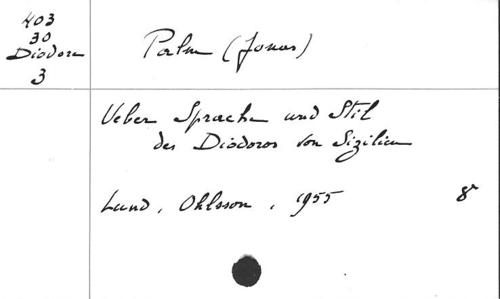 403
30
Diodore
3
Palm (Jonas)
Ueber Sprache und Stil
des Diodoros von Sizilien
Lund, Ohlsson, 1955 8°